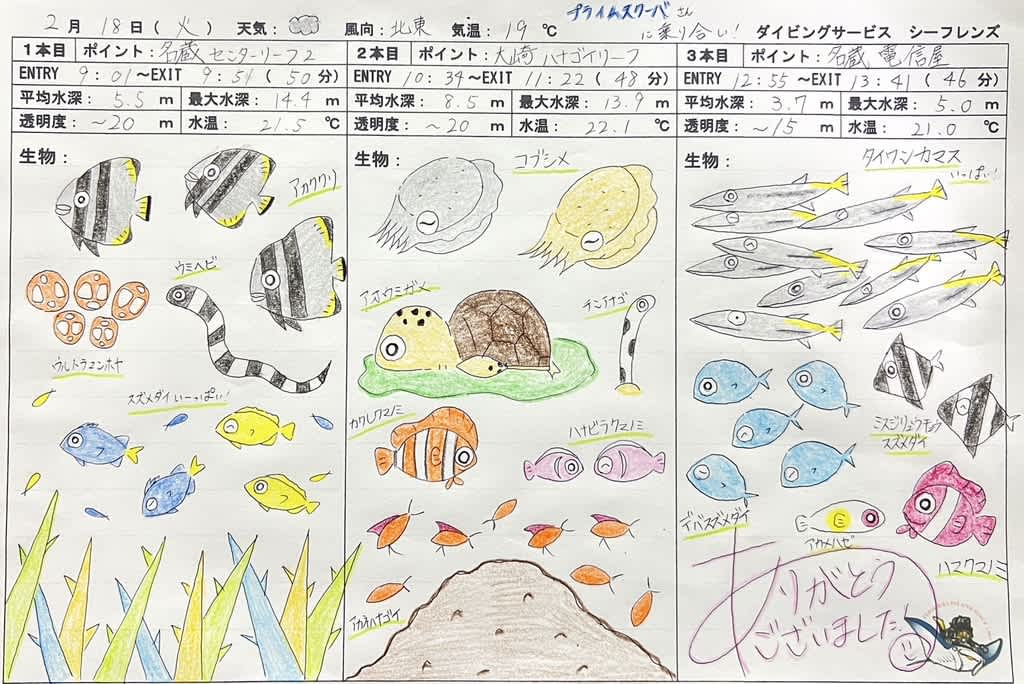 プライムスクーバさん
に乗り合い!
2月 18日(火) 天気: 風向:北東 気温:19℃ ダイビングサービス シーフレンズ
1本目 ポイント:名蔵 センターリーフ2
ENTRY 9:01~EXIT 9:51(50分)
平均水深:5.5m 最大水深:14.4m
透明度:~20m 水温:21.5℃
生物:
アカククリ
ウミヘビ
ウルトラマンホヤ
スズメダイ いーっぱい!
2本目 ポイント:大崎 ハナゴイリーフ
ENTRY 10:34~EXIT 11:22(48分)
平均水深:8.5m 最大水深:13.9m
透明度:~20m 水温:22.1℃
生物:
コブシメ
アオウミガメ
チンアナゴ
カクレクマノミ
ハナビラクマノミ
アカネハナゴイ
3本目 ポイント:名蔵 電信屋
ENTRY 12:55~EXIT 13:41(46分)
平均水深:3.7m 最大水深:5.0m
透明度:~15m 水温:21.0℃
生物:
タイワンカマス
いーっぱい!
ミスジリュウキュウ
スズメダイ
デバスズメダイ
アカメハゼ
ハマクマノミ
ありがとう
ございました!